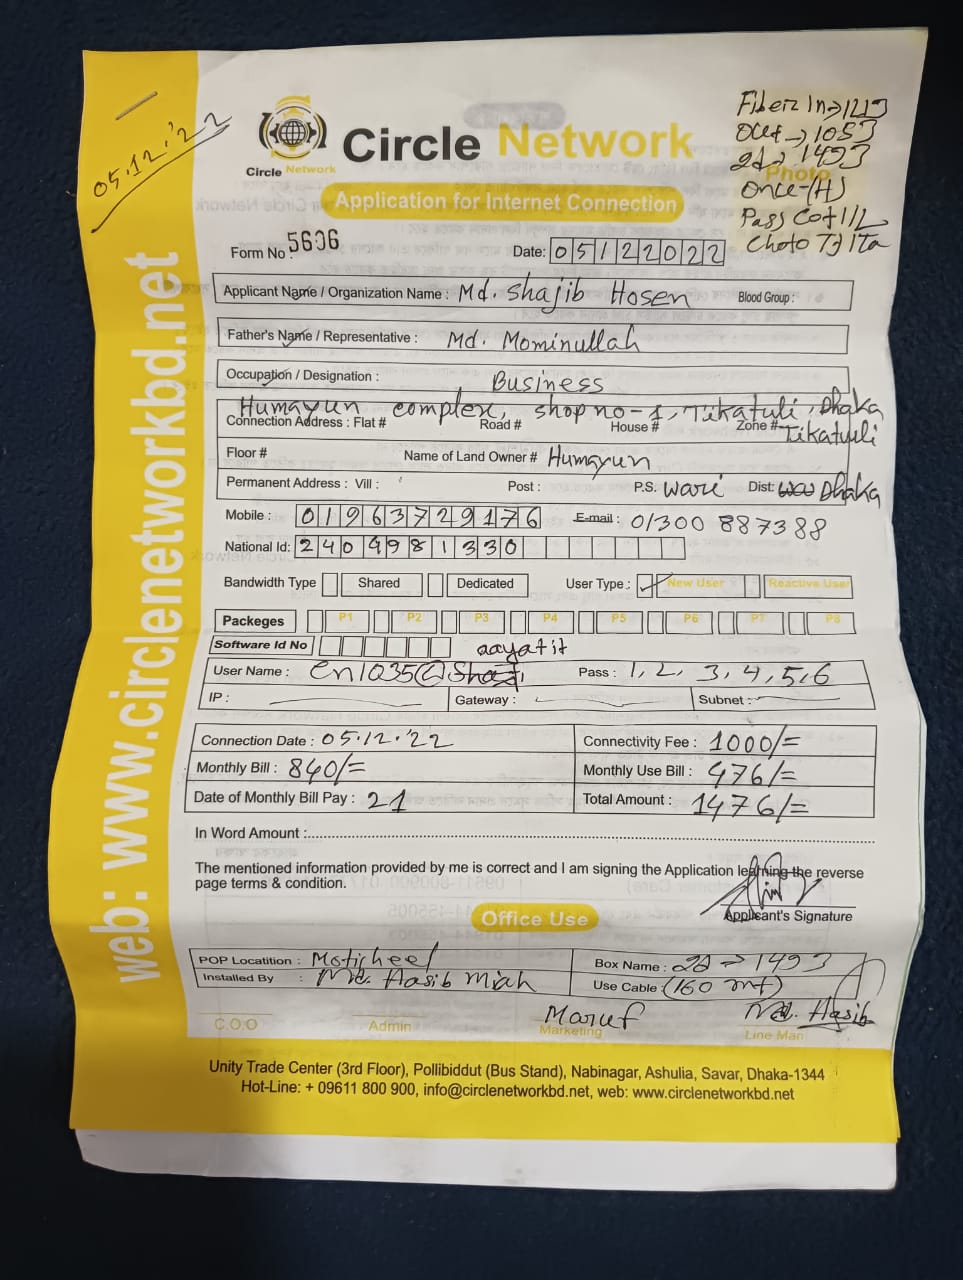 05.12.'22
Circle Network
Circle Network
Application for Internet Connection
Fiber In→1213
Out→1053
2d→1493
Once-(H)
Pass
Photo
Form No 5606
Date: 05122022
Applicant Name / Organization Name : Md. Shajib Hosen Blood Group :
Father's Name / Representative : Md. Mominullah
Occupation / Designation : Business
Humayun complex, shop no-1, Tikatuli, Dhaka
Connection Address : Flat # Road # House # Zone # Tikatuli
Floor # Name of Land Owner # Humayun
Permanent Address : Vill : Post : P.S. Wari Dist: Dhaka
Mobile : 01963729176 E-mail : 01300 887388
National Id: 2404981330
Bandwidth Type Shared Dedicated User Type : New User Reactive User
Packeges P1 P2 P3 P4 P5 P6 P7 P8
Software Id No
aayatit
User Name : en1035@ Pass : 1, 2, 3, 4, 5, 6
IP : Gateway : Subnet :
Connection Date : 05.12.'22 Connectivity Fee : 1000/=
Monthly Bill : 840/= Monthly Use Bill : 476/=
Date of Monthly Bill Pay : 21 Total Amount : 1476/=
In Word Amount :
The mentioned information provided by me is correct and I am signing the Application learning the reverse
page terms & condition.
Applicant's Signature
Office Use
POP Locatition : Motijheel Box Name : 2d→1493
Installed By : Md. Hasib Miah Use Cable (160 mt)
Maruf Md. Hasib
C.O.O Admin Marketing Line Man
Unity Trade Center (3rd Floor), Pollibiddut (Bus Stand), Nabinagar, Ashulia, Savar, Dhaka-1344
Hot-Line: + 09611 800 900, info@circlenetworkbd.net, web: www.circlenetworkbd.net
web: www.circlenetworkbd.net